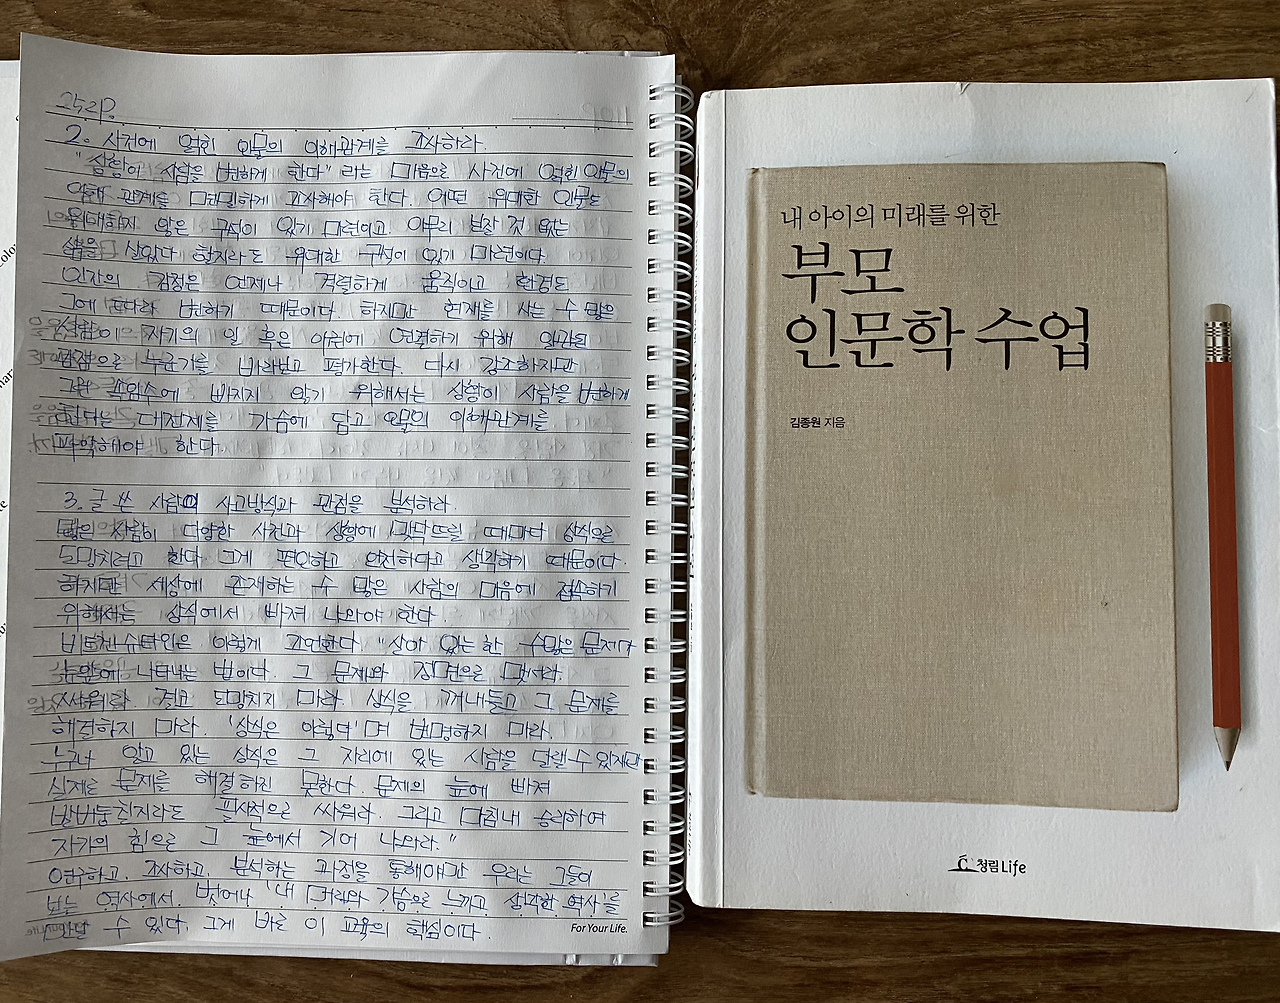 252p.
2. 사건에 얽힌 인물의 이해관계를 조사하라.
"상황이 사람을 변하게 한다" 라는 마음으로 사건에 얽힌 인물의
이해 관계를 면밀하게 조사해야 한다. 어떤 위대한 인물도
위대하지 않은 구석이 있기 마련이고, 아무리 보잘 것 없는
삶을 살았다 할지라도 위대한 구석이 있기 마련이다.
인간의 감정은 언제나 격렬하게 움직이고 환경도
그에 따라 변하기 때문이다. 하지만 현재를 사는 수 많은
사람이 자기의 일 혹은 이권에 연결하기 위해 일관된
관점으로 누군가를 바라보고 평가한다. 다시 강조하지만
그런 속임수에 빠지지 않기 위해서는 상황이 사람을 변하게
한다는 대전제를 가슴에 담고 인물의 이해관계를
파악해야 한다.
3. 글 쓴 사람의 사고방식과 관점을 분석하라.
많은 사람이 다양한 사건과 상황에 맞닥뜨릴 때마다 상식으로
도망치려고 한다. 그게 편안하고 안전하다고 생각하기 때문이다.
하지만 세상에 존재하는 수 많은 사람의 마음에 접속하기
위해서는 상식에서 빠져 나와야 한다.
비트겐슈타인은 이렇게 조언한다. "살아 있는 한 수많은 문제가
눈앞에 나타나는 법이다. 그 문제와 정면으로 맞서라.
싸워라. 결코 도망치지 마라. 상식을 꺼내들고 그 문제를
해결하지 마라. '상식은 이렇다'며 변명하지 마라.
누구나 알고 있는 상식은 그 자리에 있는 사람을 달랠 수 있지만
실제로 문제를 해결하진 못한다. 문제의 늪에 빠져
발버둥칠지라도 필사적으로 싸워라. 그리고 마침내 승리하여
자기의 힘으로 그 늪에서 기어 나와라."
연구하고, 조사하고, 분석하는 과정을 통해야만 우리는 그들이
보는 역사에서 벗어나 '내 머리와 가슴으로 느끼고 생각한 역사'를
만날 수 있다. 그게 바로 이 교육의 핵심이다.
For Your Life.
내 아이의 미래를 위한
부모
인문학 수업
김종원 지음
청림Life